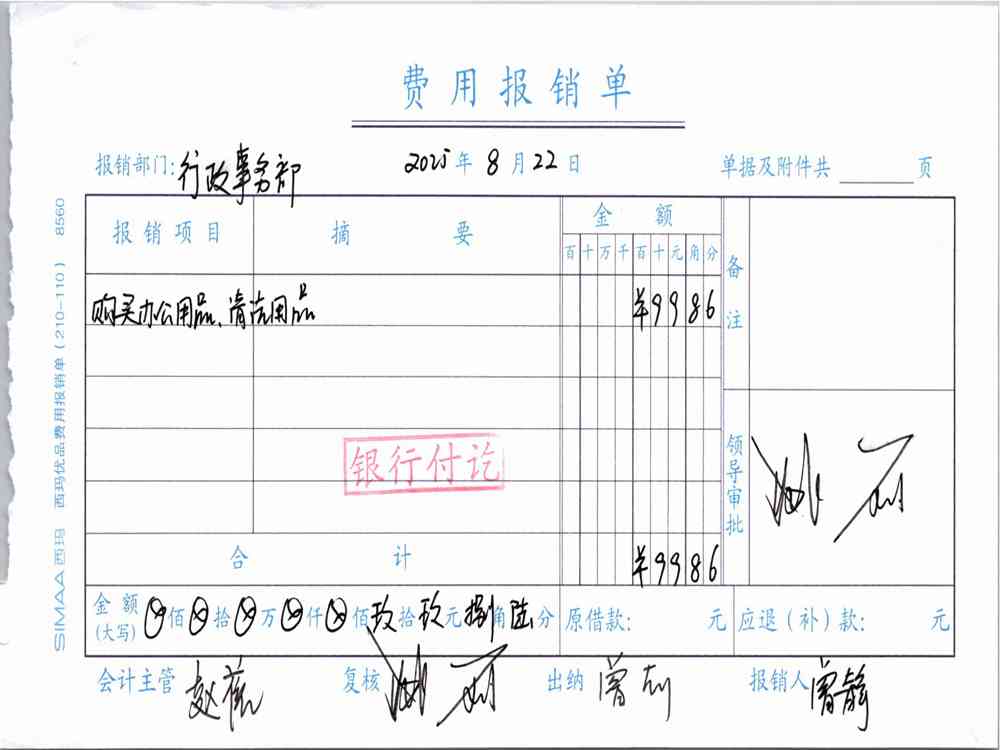 费用报销单
报销部门:行政事务部 2025年8月22日 单据及附件共 页
报销项目 摘要 金额 备注
百十万千百十元角分
购买办公用品、清洁用品 ¥9986
银行付讫
领导审批
合计 ¥9986
金额(大写) ⊗佰⊗拾⊗万⊗仟⊗佰玖拾玖元捌角陆分 原借款: 元 应退(补)款: 元
会计主管 赵 复核 出纳 曾 报销人 曾静
SIMAA西玛 西玛优品费用报销单(210-110) 8560